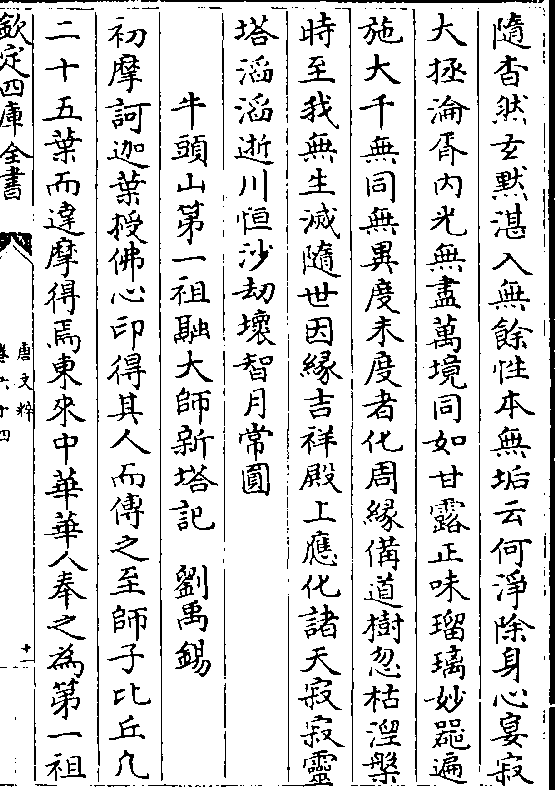 隨杳然玄默湛入無餘性本無垢云何淨除身心宴寂
大拯淪胥內光無盡萬境同如甘露正味瑠璃妙器遍
施大千無同無異度未度者化周緣備道樹忽枯湼槃
時至我無生滅隨世因緣吉祥殿上應化諸天寂寂靈
塔滔滔逝川恒沙劫壞智月常圓
牛頭山第一祖融大師新塔記　劉禹錫
初摩訶迦葉授佛心印得其人而傳之至師子比丘凡
二十五葉而達摩得焉東來中華華人奉之為第一祖
欽定四庫全書
唐文粹
卷六十四
十一